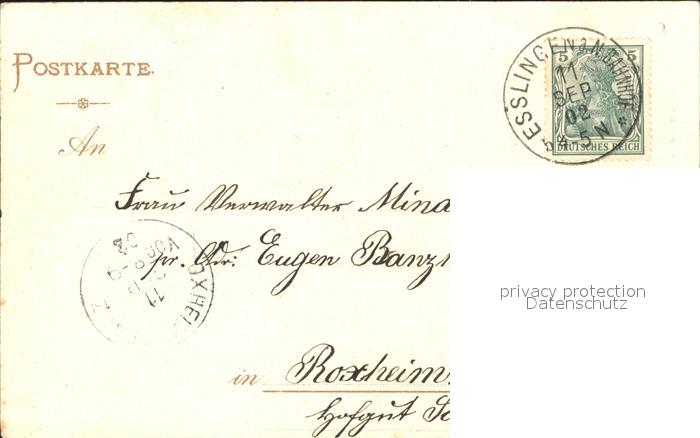 POSTKARTE.
ESSLINGEN a. N. BAHNHOF
11
SEP
02
5 N
5 5
DEUTSCHES REICH
An
Frau Verwalter Mina
pr. Adr: Eugen Banz
ROXHEIM
11
9
02
privacy protection
Datenschutz
in Roxheim
Hofgut